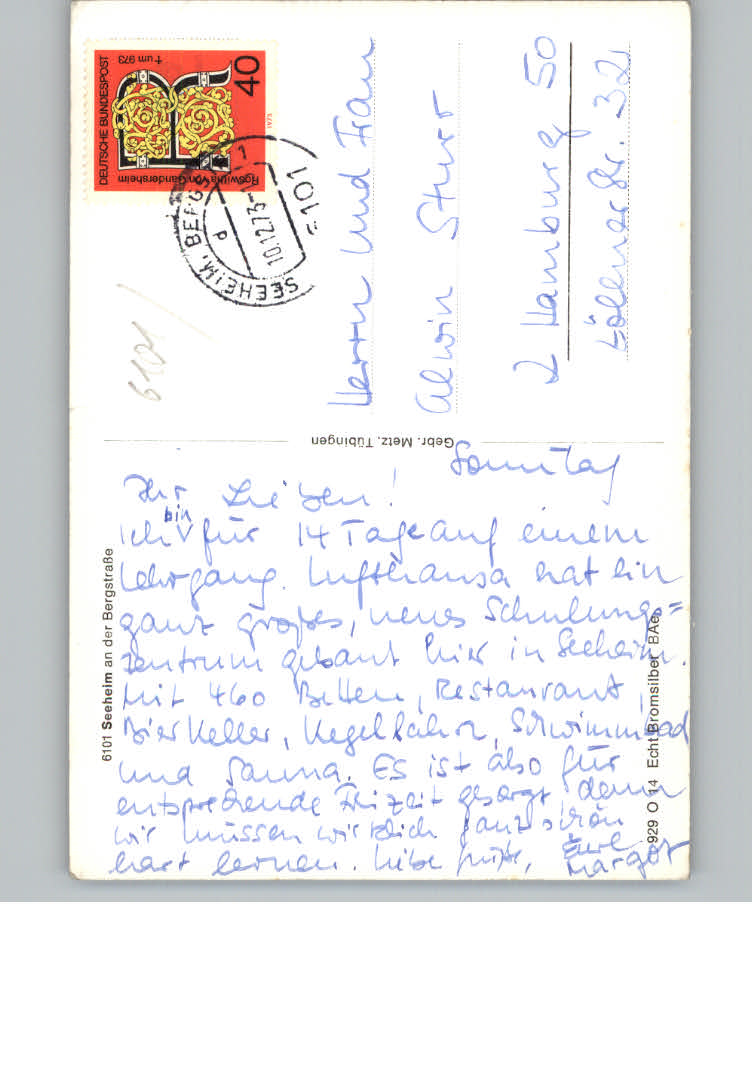 DEUTSCHE BUNDESPOST
40
† um 973
Roswitha von Gandersheim
1973
SEEHEIM, BERGS
6101
10.12.73
d
6101
Herrn und Frau
Alwin
2 Hamburg 50
Str. 32
Gebr. Metz, Tübingen
6101 Seeheim an der Bergstraße
929 O 14 Echt Bromsilber BAe
Sonntag
Ihr Lieben!
Ich bin für 14 Tage auf einem
Lehrgang. Lufthansa hat ein
ganz großes, neues Schulungs=
zentrum gebaut hier in Seeheim.
Mit 460 Betten, Restaurant,
Bierkeller, Kegelbahn, Schwimmbad
und Sauna. Es ist also für
entsprechende Freizeit gesorgt denn
wir müssen wirklich ganz schön
hart lernen. Liebe Grüße, Eure
Margot